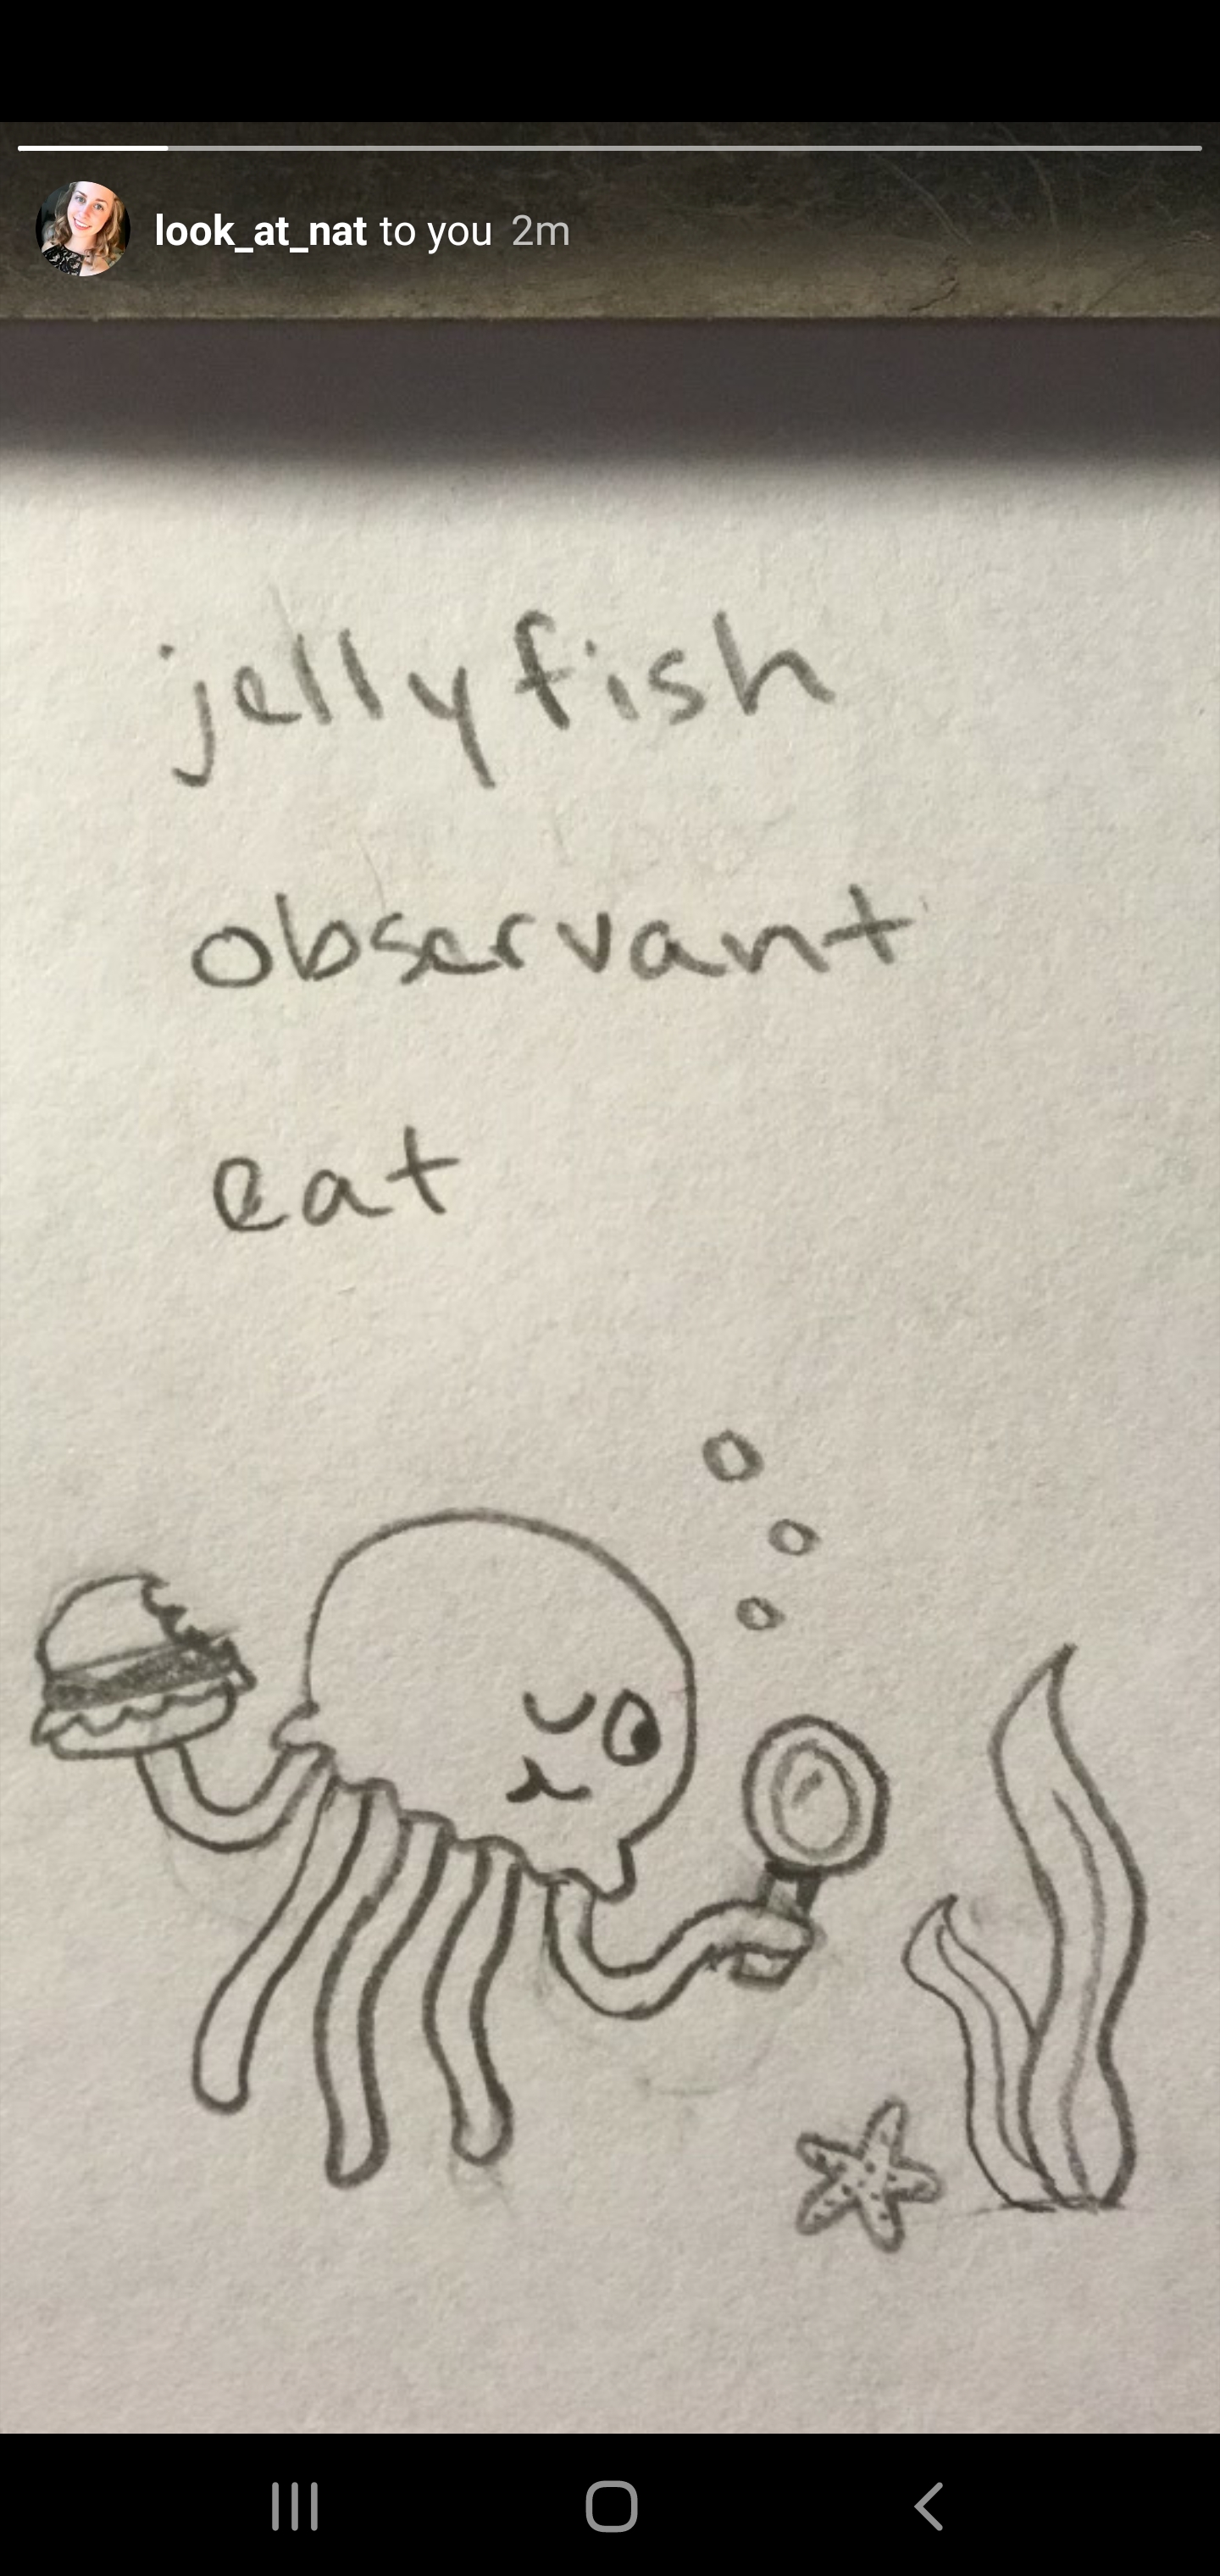 look_at_nat to you 2m
jellyfish
observant
eat